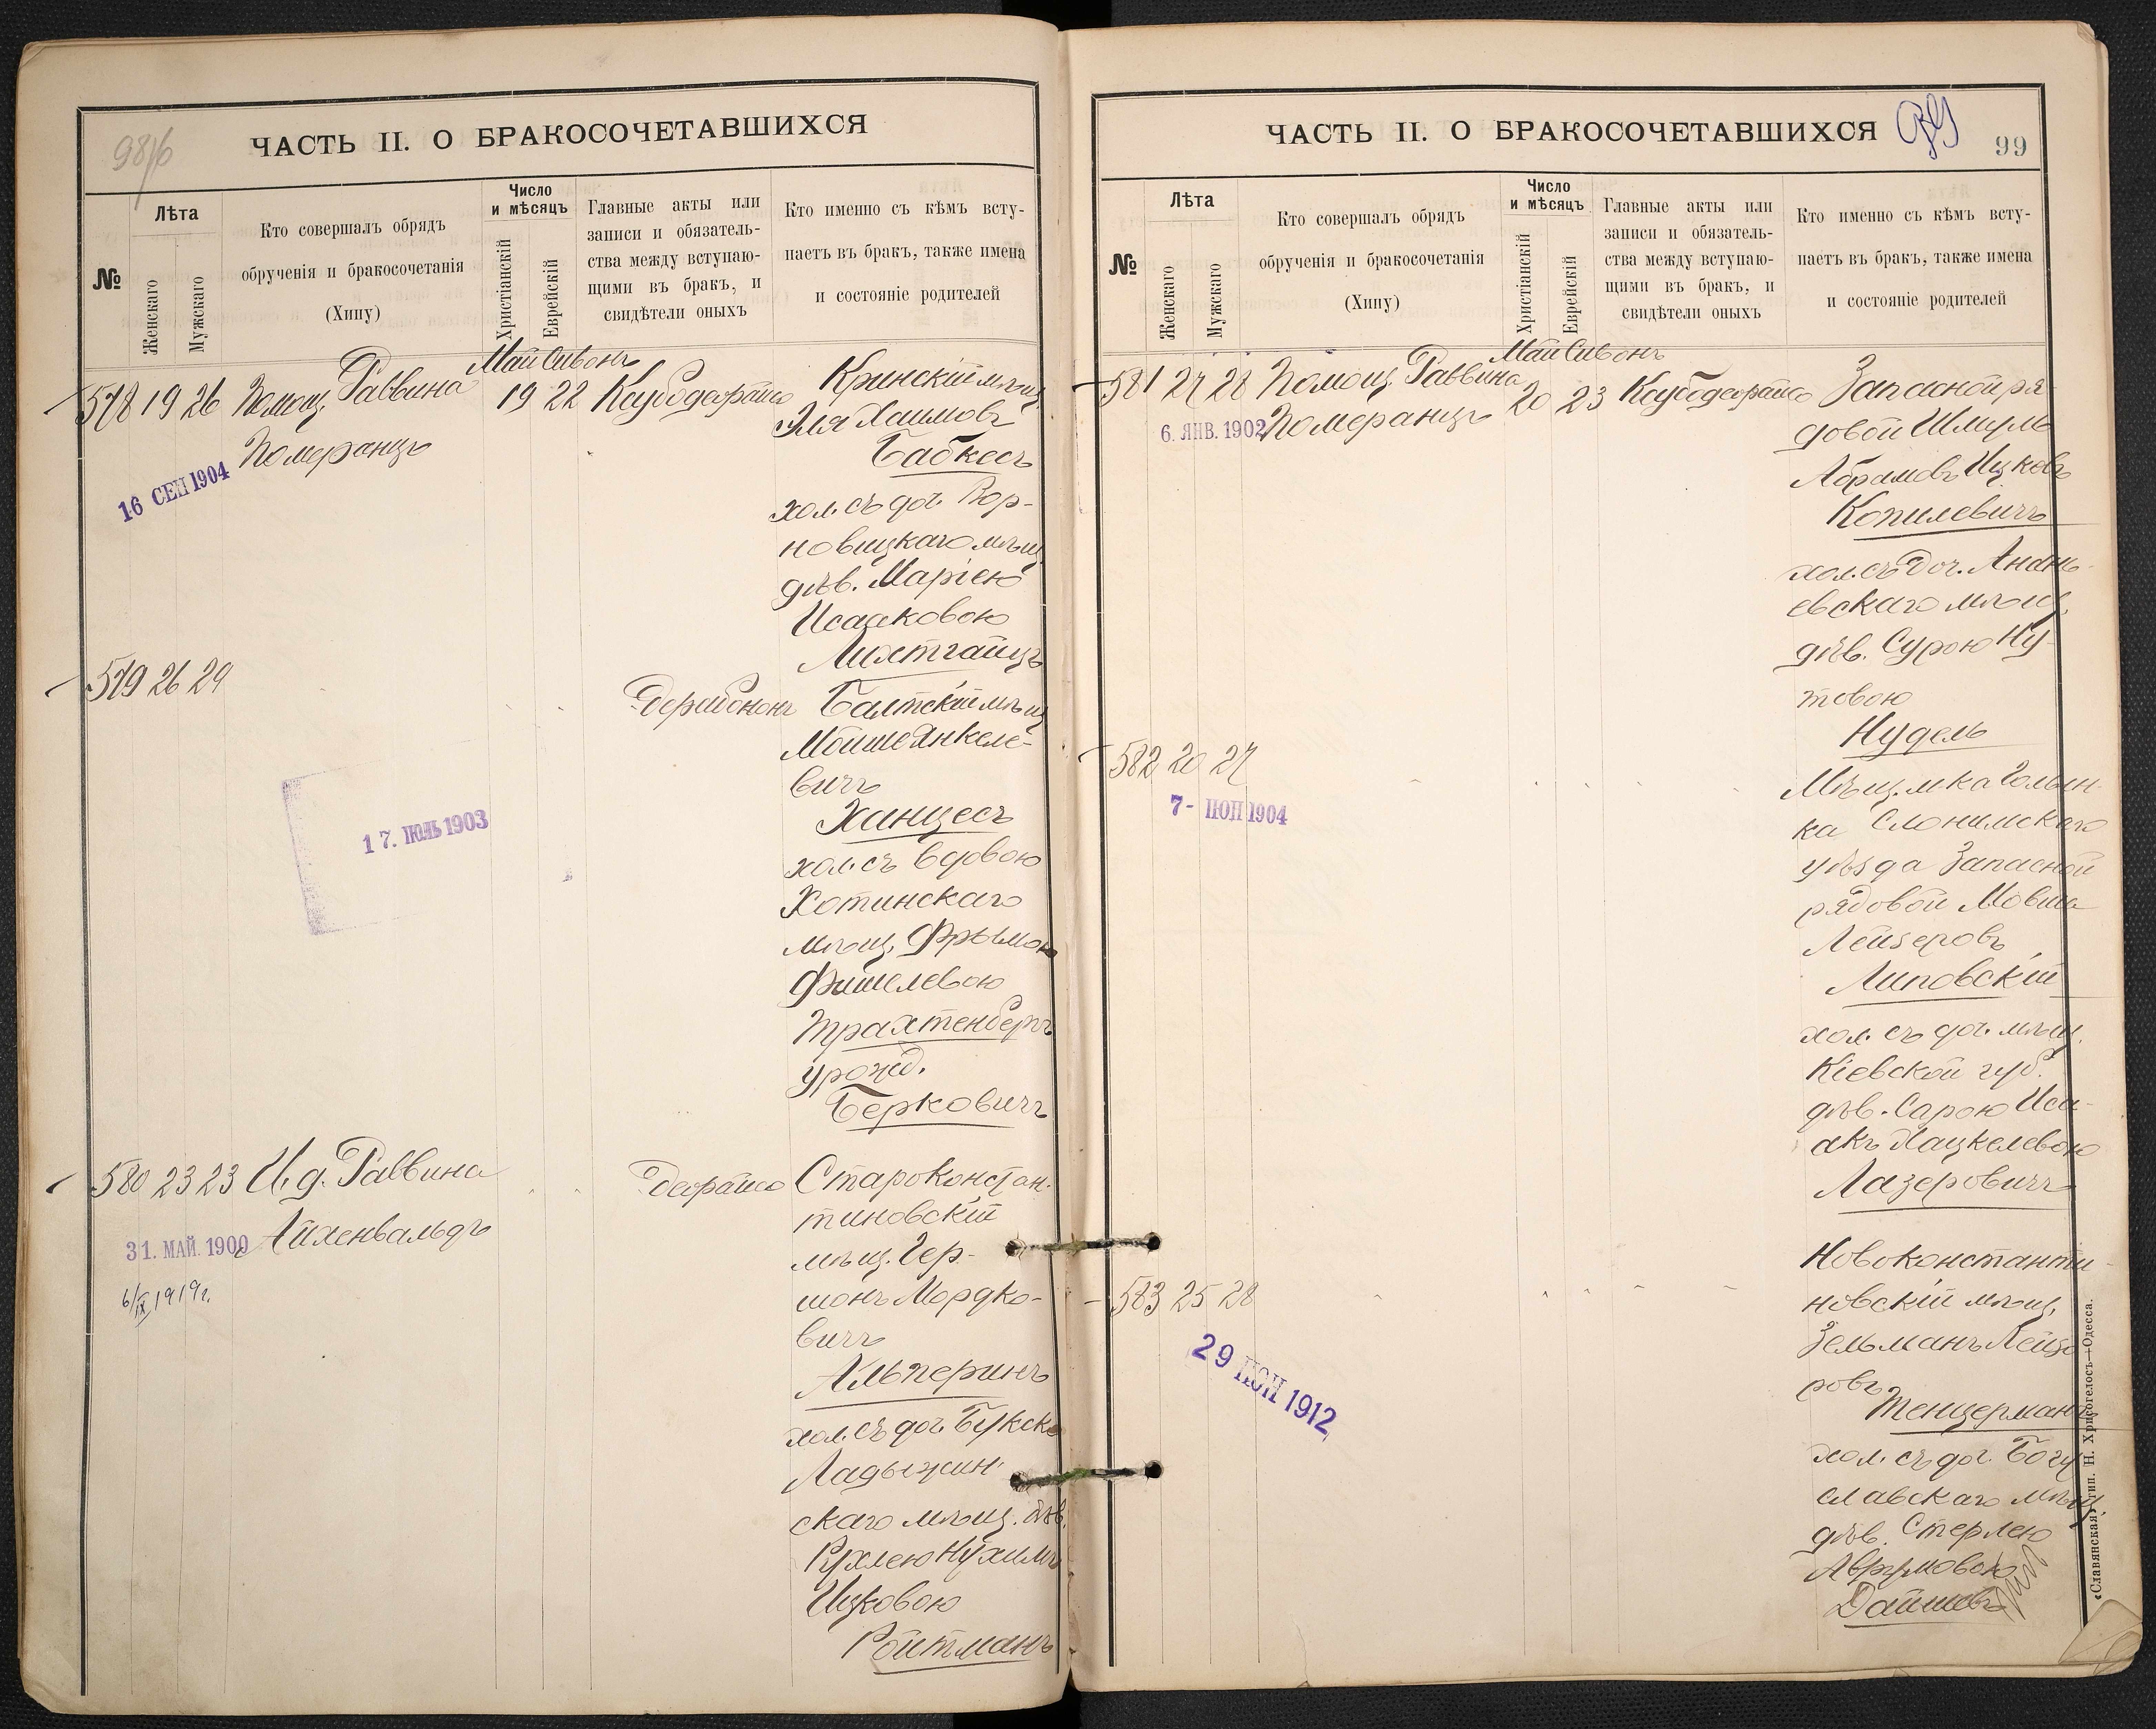 98/б
ЧАСТЬ II. О БРАКОСОЧЕТАВШИХСЯ
№
Лѣта
Женскаго
Мужскаго
Кто совершалъ обрядъ
обрученія и бракосочетанія
(Хипу)
Число
и мѣсяцъ
Христіанскій
Еврейскій
Главные акты или
записи и обязатель-
ства между вступаю-
щими въ бракъ, и
свидѣтели оныхъ
Кто именно съ кѣмъ всту-
паетъ въ бракъ, также имена
и состояніе родителей
Май Сивонъ
578 19 26 Помощ. Раввина 19 22
Померанцъ
16 СЕН 1904
Кринскій мѣщ.
Эля Хаимовъ
Бабкесъ
хол. съ доч. Вор-
новицкаго мѣщ.
дѣв. Маріею
Исааковою
Лихтгайцъ
579 26 29
17. ІЮЛЬ 1903
Балтскій мѣщ.
Мойше Янкеле-
вичъ
Ханцесъ
хол. съ вдовою
Хотинскаго
мѣщ. Фрымою
Фишелевою
Трахтенбергъ
урожд.
Берковичъ
580 23 23 И. д. Раввина
Айхенвальдъ
31. МАЙ. 1900
6/IX 1919 г.
Староконстан-
тиновскій
мѣщ. Гер-
шонъ Мордко-
вичъ
Альперинъ
хол. съ доч. Букско
Ладыжин-
скаго мѣщ. дѣв.
Рухлею Нухимъ
Ицковою
Ройтманъ
ЧАСТЬ II. О БРАКОСОЧЕТАВШИХСЯ
99
№
Лѣта
Женскаго
Мужскаго
Кто совершалъ обрядъ
обрученія и бракосочетанія
(Хипу)
Число
и мѣсяцъ
Христіанскій
Еврейскій
Главные акты или
записи и обязатель-
ства между вступаю-
щими въ бракъ, и
свидѣтели оныхъ
Кто именно съ кѣмъ всту-
паетъ въ бракъ, также имена
и состояніе родителей
Май Сивонъ
581 27 28 Помощ. Раввина 20 23
Померанцъ
6. ЯНВ. 1902
Запасной ря-
довой Шмуль
Абрамовъ Ицковъ
Копилевичъ
хол. съ доч. Анань-
евскаго мѣщ.
дѣв. Сурою Ну-
товою
Нудель
582 20 27
7- ІЮН 1904
Мѣщ. м-ка Голын-
ка Слонимскаго
уѣзда Запасной
рядовой Мовша
Лейзеровъ
Липовскій
хол. съ доч. мѣщ.
Кіевской губ.
дѣв. Сарою Иса-
акъ Хацкелевою
Лазеровичъ
583 25 28
29 ІЮН 1912
Новоконстанти-
новскій мѣщ.
Зельманъ Лейзе
ровъ
Тенцерманъ
хол. съ доч. Богу
славскаго мѣщ.
дѣв. Стерлею
Аврумовою
«Славянская» тип. Н. Хрисогелосъ—Одесса.